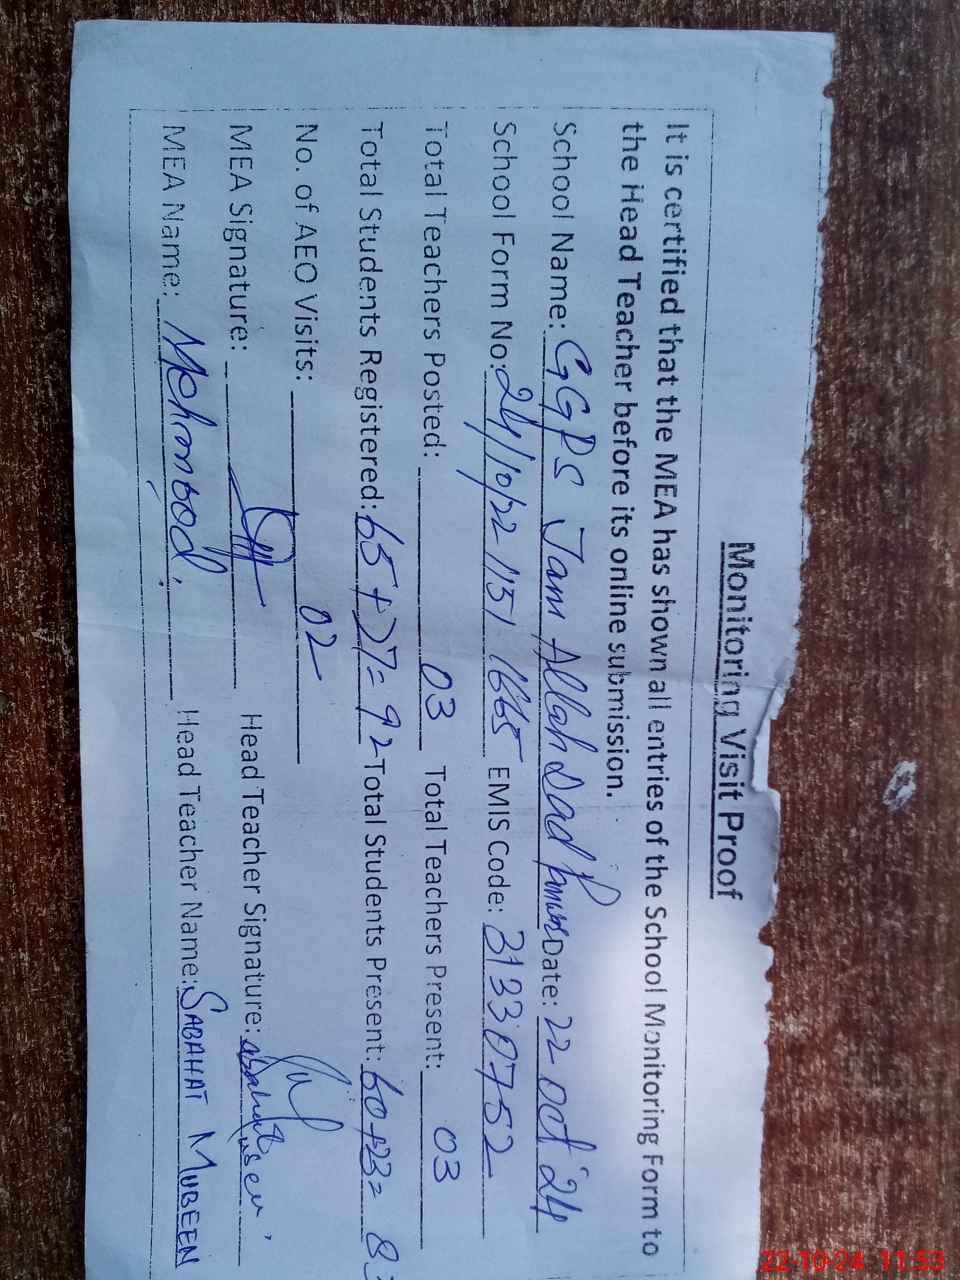 Monitoring Visit Proof
It is certified that the MEA has shown all entries of the School Monitoring Form to
the Head Teacher before its online submission.
School Name: GGPS Jam Allah Dad Date: 22-Oct'24
School Form No: 24/10/22 1151 1665 EMIS Code: 31330752
Total Teachers Posted: 03 Total Teachers Present: 03
Total Students Registered: 65+27= 92 Total Students Present: 60+23=
No. of AEO Visits: 02
MEA Signature: Head Teacher Signature:
MEA Name: Mehmood. Head Teacher Name: SABAHAT MUBEEN
22-10-24 11:53